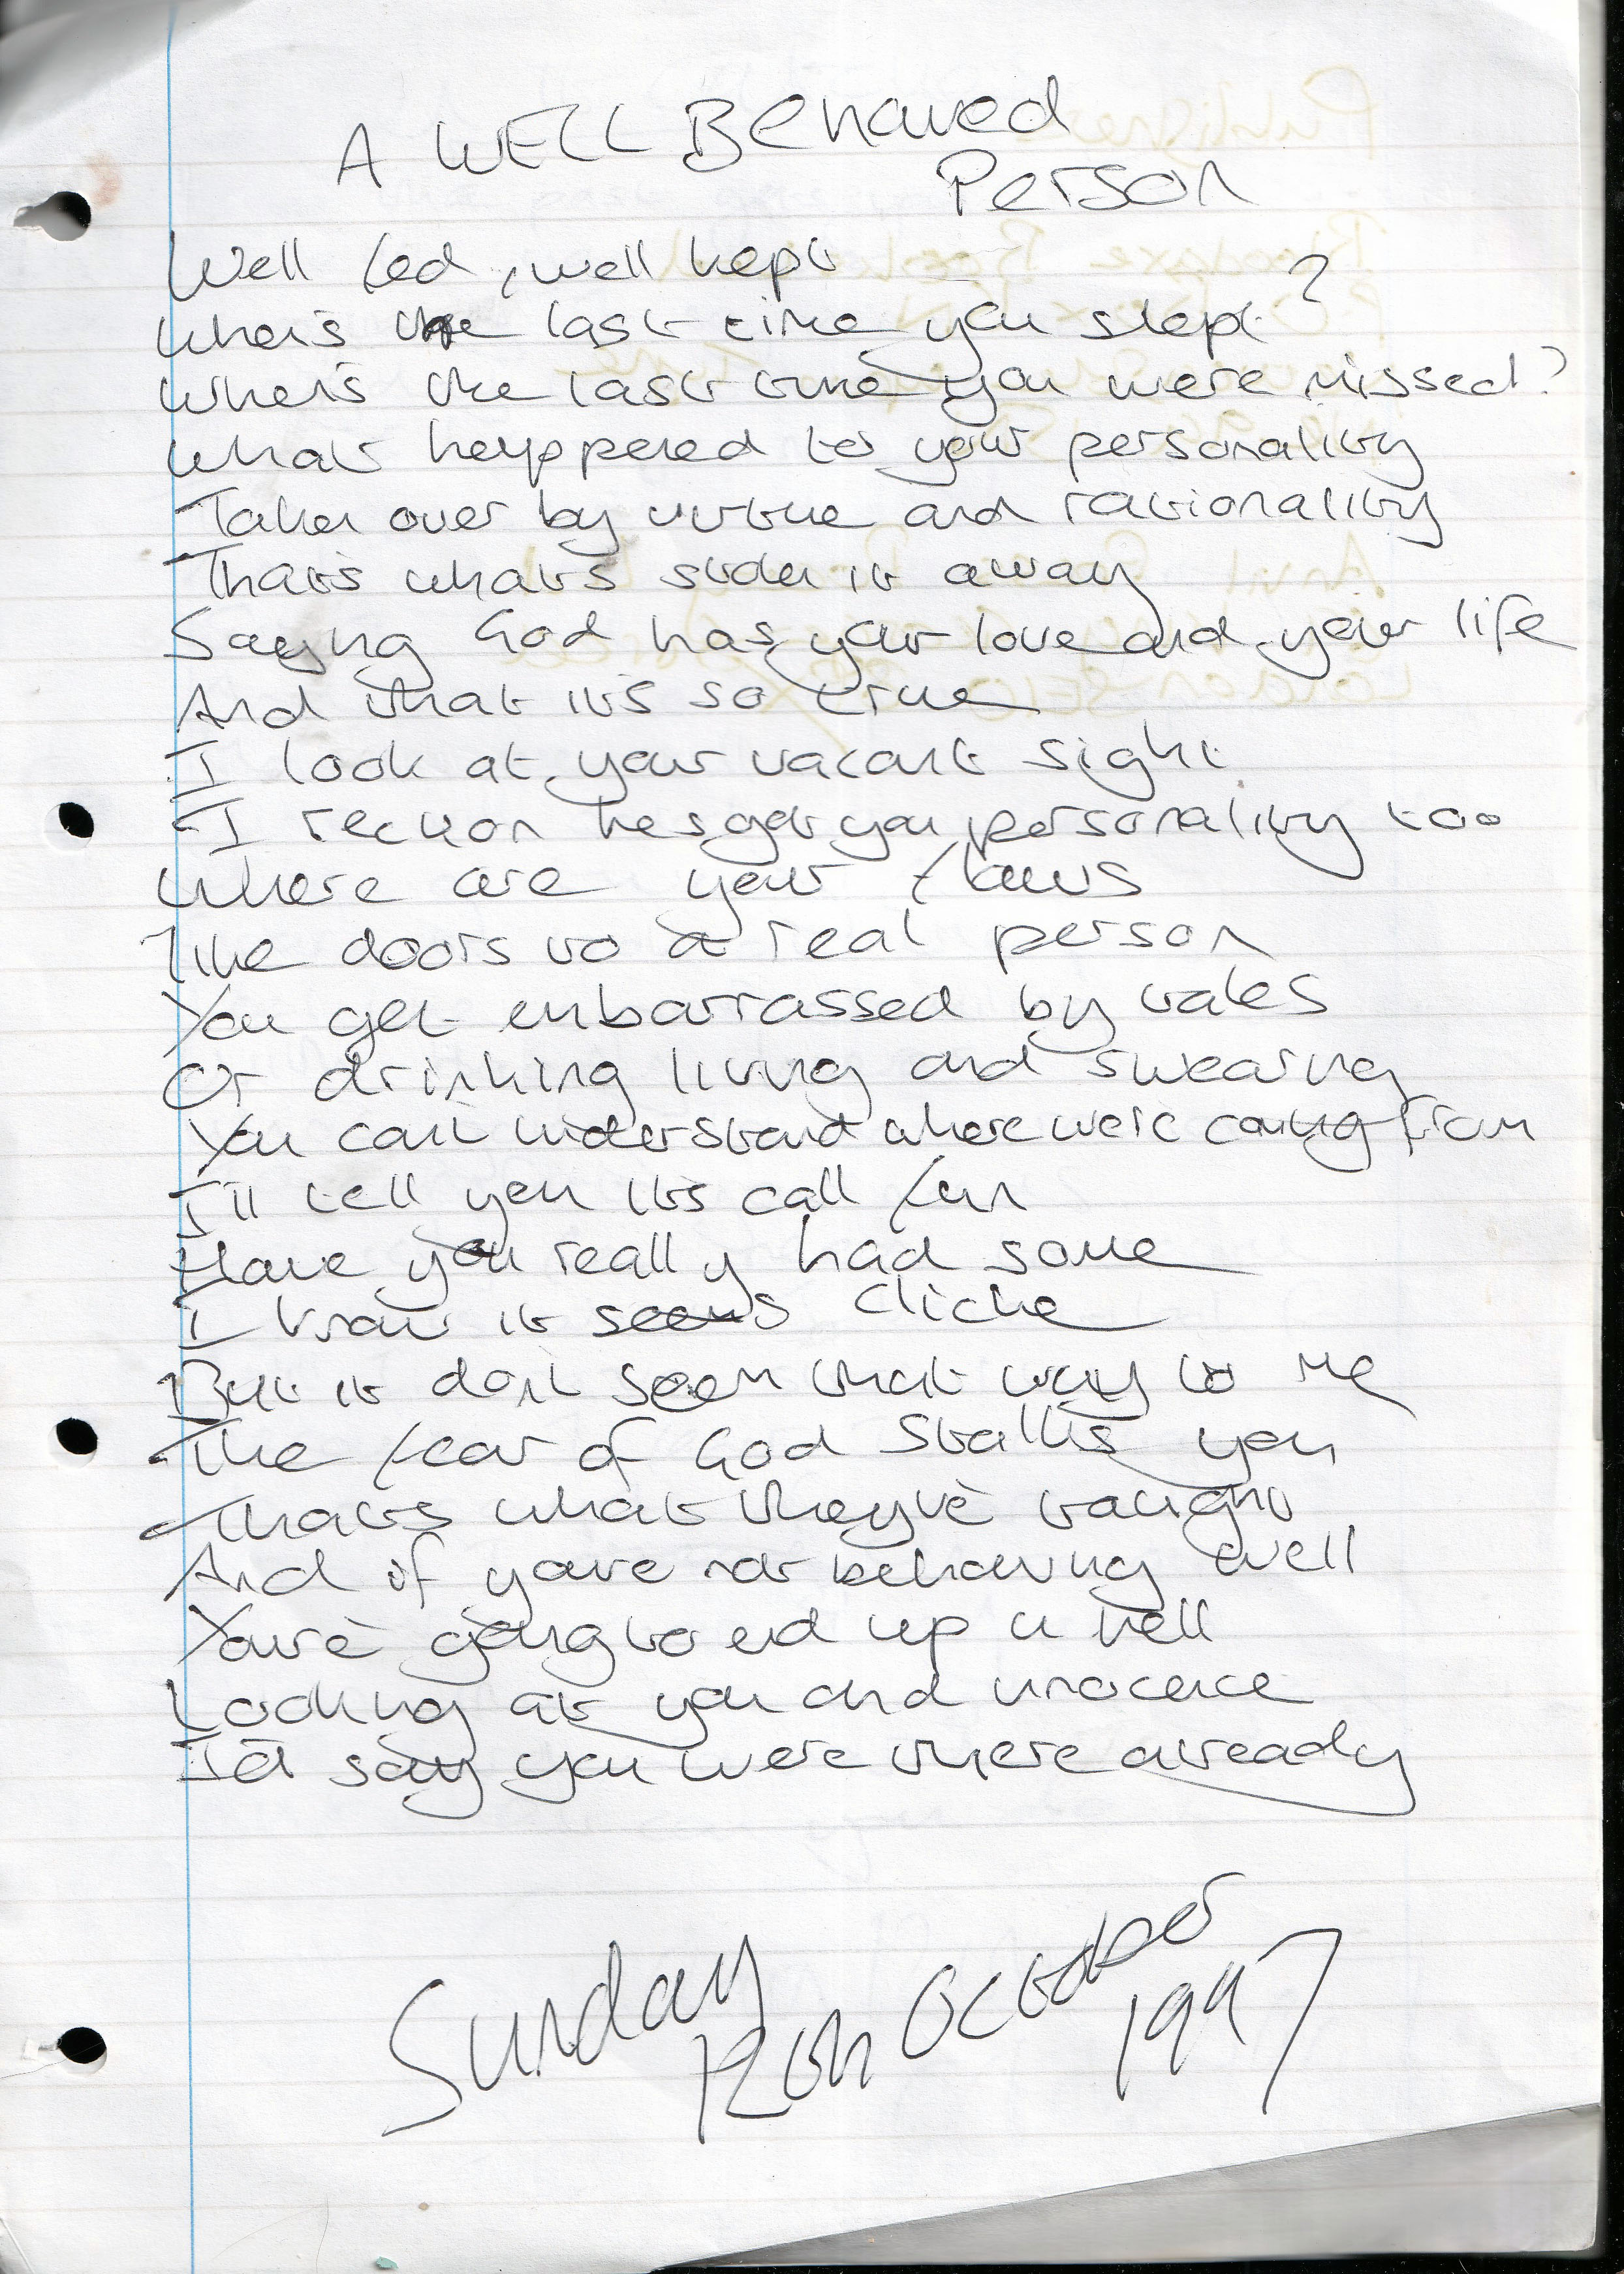 A WELL Behaved
Person
Well fed, well kept
When's the last time you slept?
When's the last time you were missed?
What heyppened to your personality
Taken over by virtue and rationality
That's what's stolen it away
Saying God has your love and your life
And that it's so true
I look at your vacant sight
I reckon hes got you personality too
Where are your flaws
like doors to a real person
You get embarrassed by tales
Or drinking living and swearing
You can't understand where we're coming from
I'll tell you it's call fun
Have you really had some
I know it seems cliche
But it don't seem that way to me
The fear of God stalks you
That's what they've taught
And if youre not behaving well
You're going to end up in hell
Looking at you and innocence
I'd say you were there already
Sunday
12th October
1997